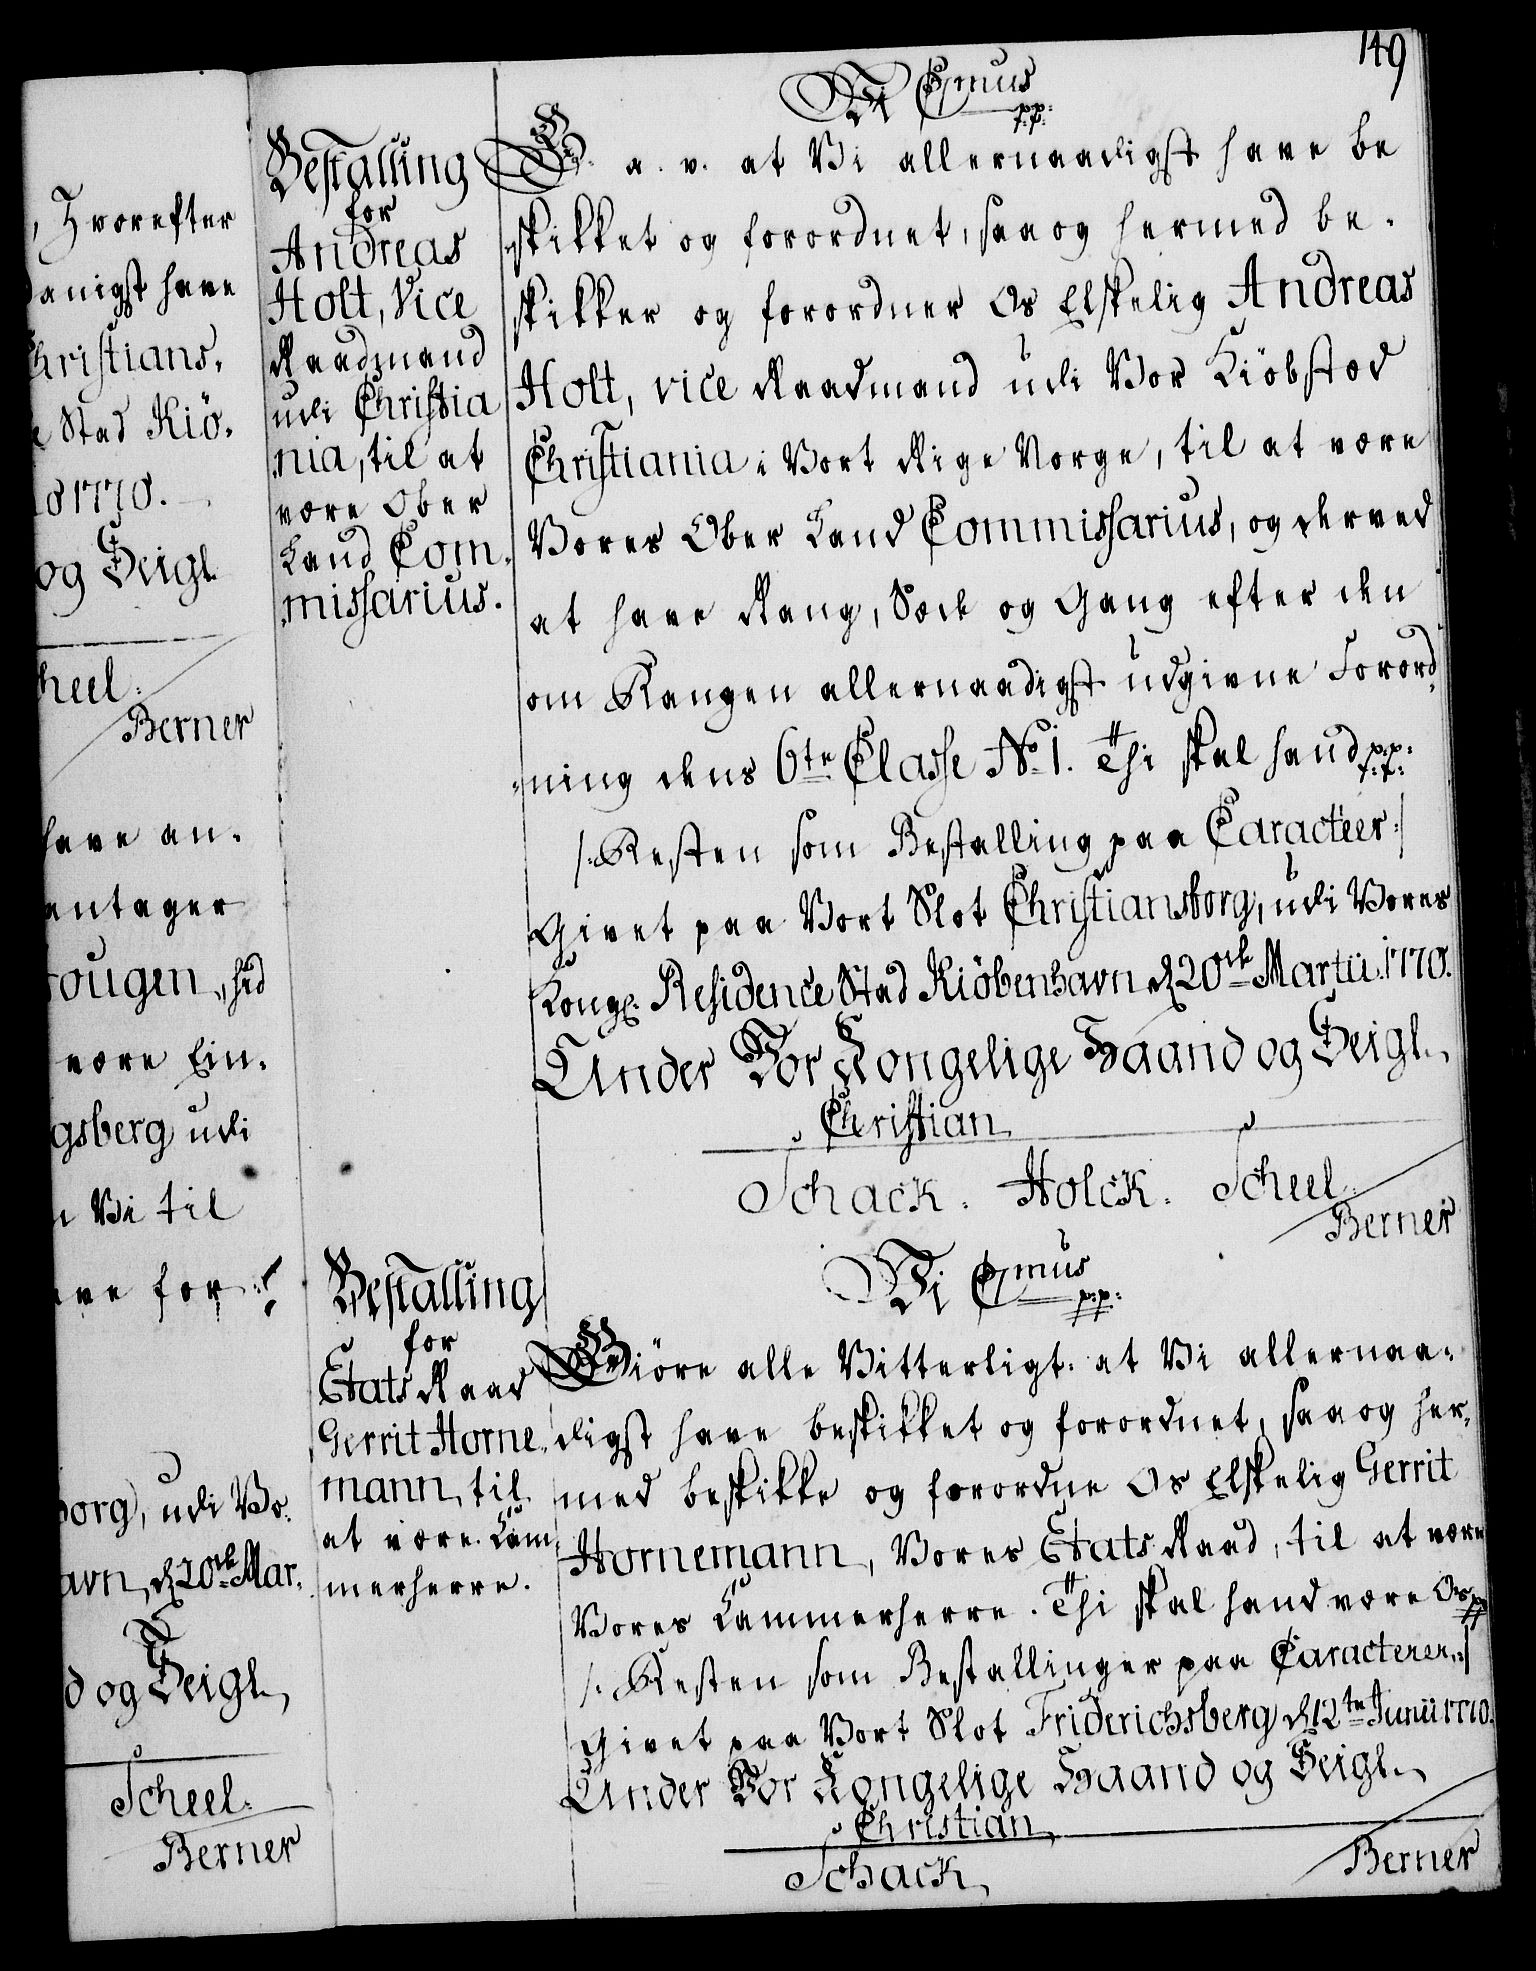 149
, Hvorefter
danigst have
Christians-
e Stad Kiö-
10 1770.
og Seigl.
cheel.
Berner
have an-
antager
ougen, hid
være Ein-
gsberg udi
n Vi til
ave for
borg, udi Vo-
avn, d 20de Mar-
d og Seigl.
Scheel.
Berner
Bestalling
for
Andreas
Holt, Vice
Raadmand
udi Christia
nia, til at
være Ober
Land Com-
missarius.
Vi C7mus pp:
G. a. v. at Vi allernaadigst have be
skikket og forordnet, saa og hermed be-
skikker og forordner Os Elskelig Andreas
Holt, vice Raadmand udi Vor Kiöbstæd
Christiania i Vort Rige Norge, til at være
Vores Ober Land Commissarius, og derved
at have Rang, Sæde og Gang efter den
om Rangen allernaadigst udgivne Forord-
ning dens 6te Classe No 1. Thi skal hand pp:
/: Resten som Bestalling paa Caracteer :/
Givet paa Vort Slot Christiansborg, udi Vores
Kongl: Residence Stad Kiöbenhavn d 20de Martii 1770.
Under Vor Kongelige Haand og Seigl.
Christian
Schack. Holck. Scheel.
Berner
Bestalling
for
Etats Raad
Gerrit Horne-
mann, til
at være Cam-
merherre.
Vi C7mus pp:
Giöre alle Vitterligt: at Vi allernaa-
digst have beskikket og forordnet, saa og her-
med beskikke og forordne Os Elskelig Gerrit
Hornemann, Vores Etats Raad, til at være
Vores Cammerherre. Thi skal hand være Os pp
/: Resten som Bestallinger paa Caracterer :/
Givet paa Vort Slot Friderichsberg d 12te Junii 1770.
Under Vor Kongelige Haand og Seigl.
Christian
Schack
Berner